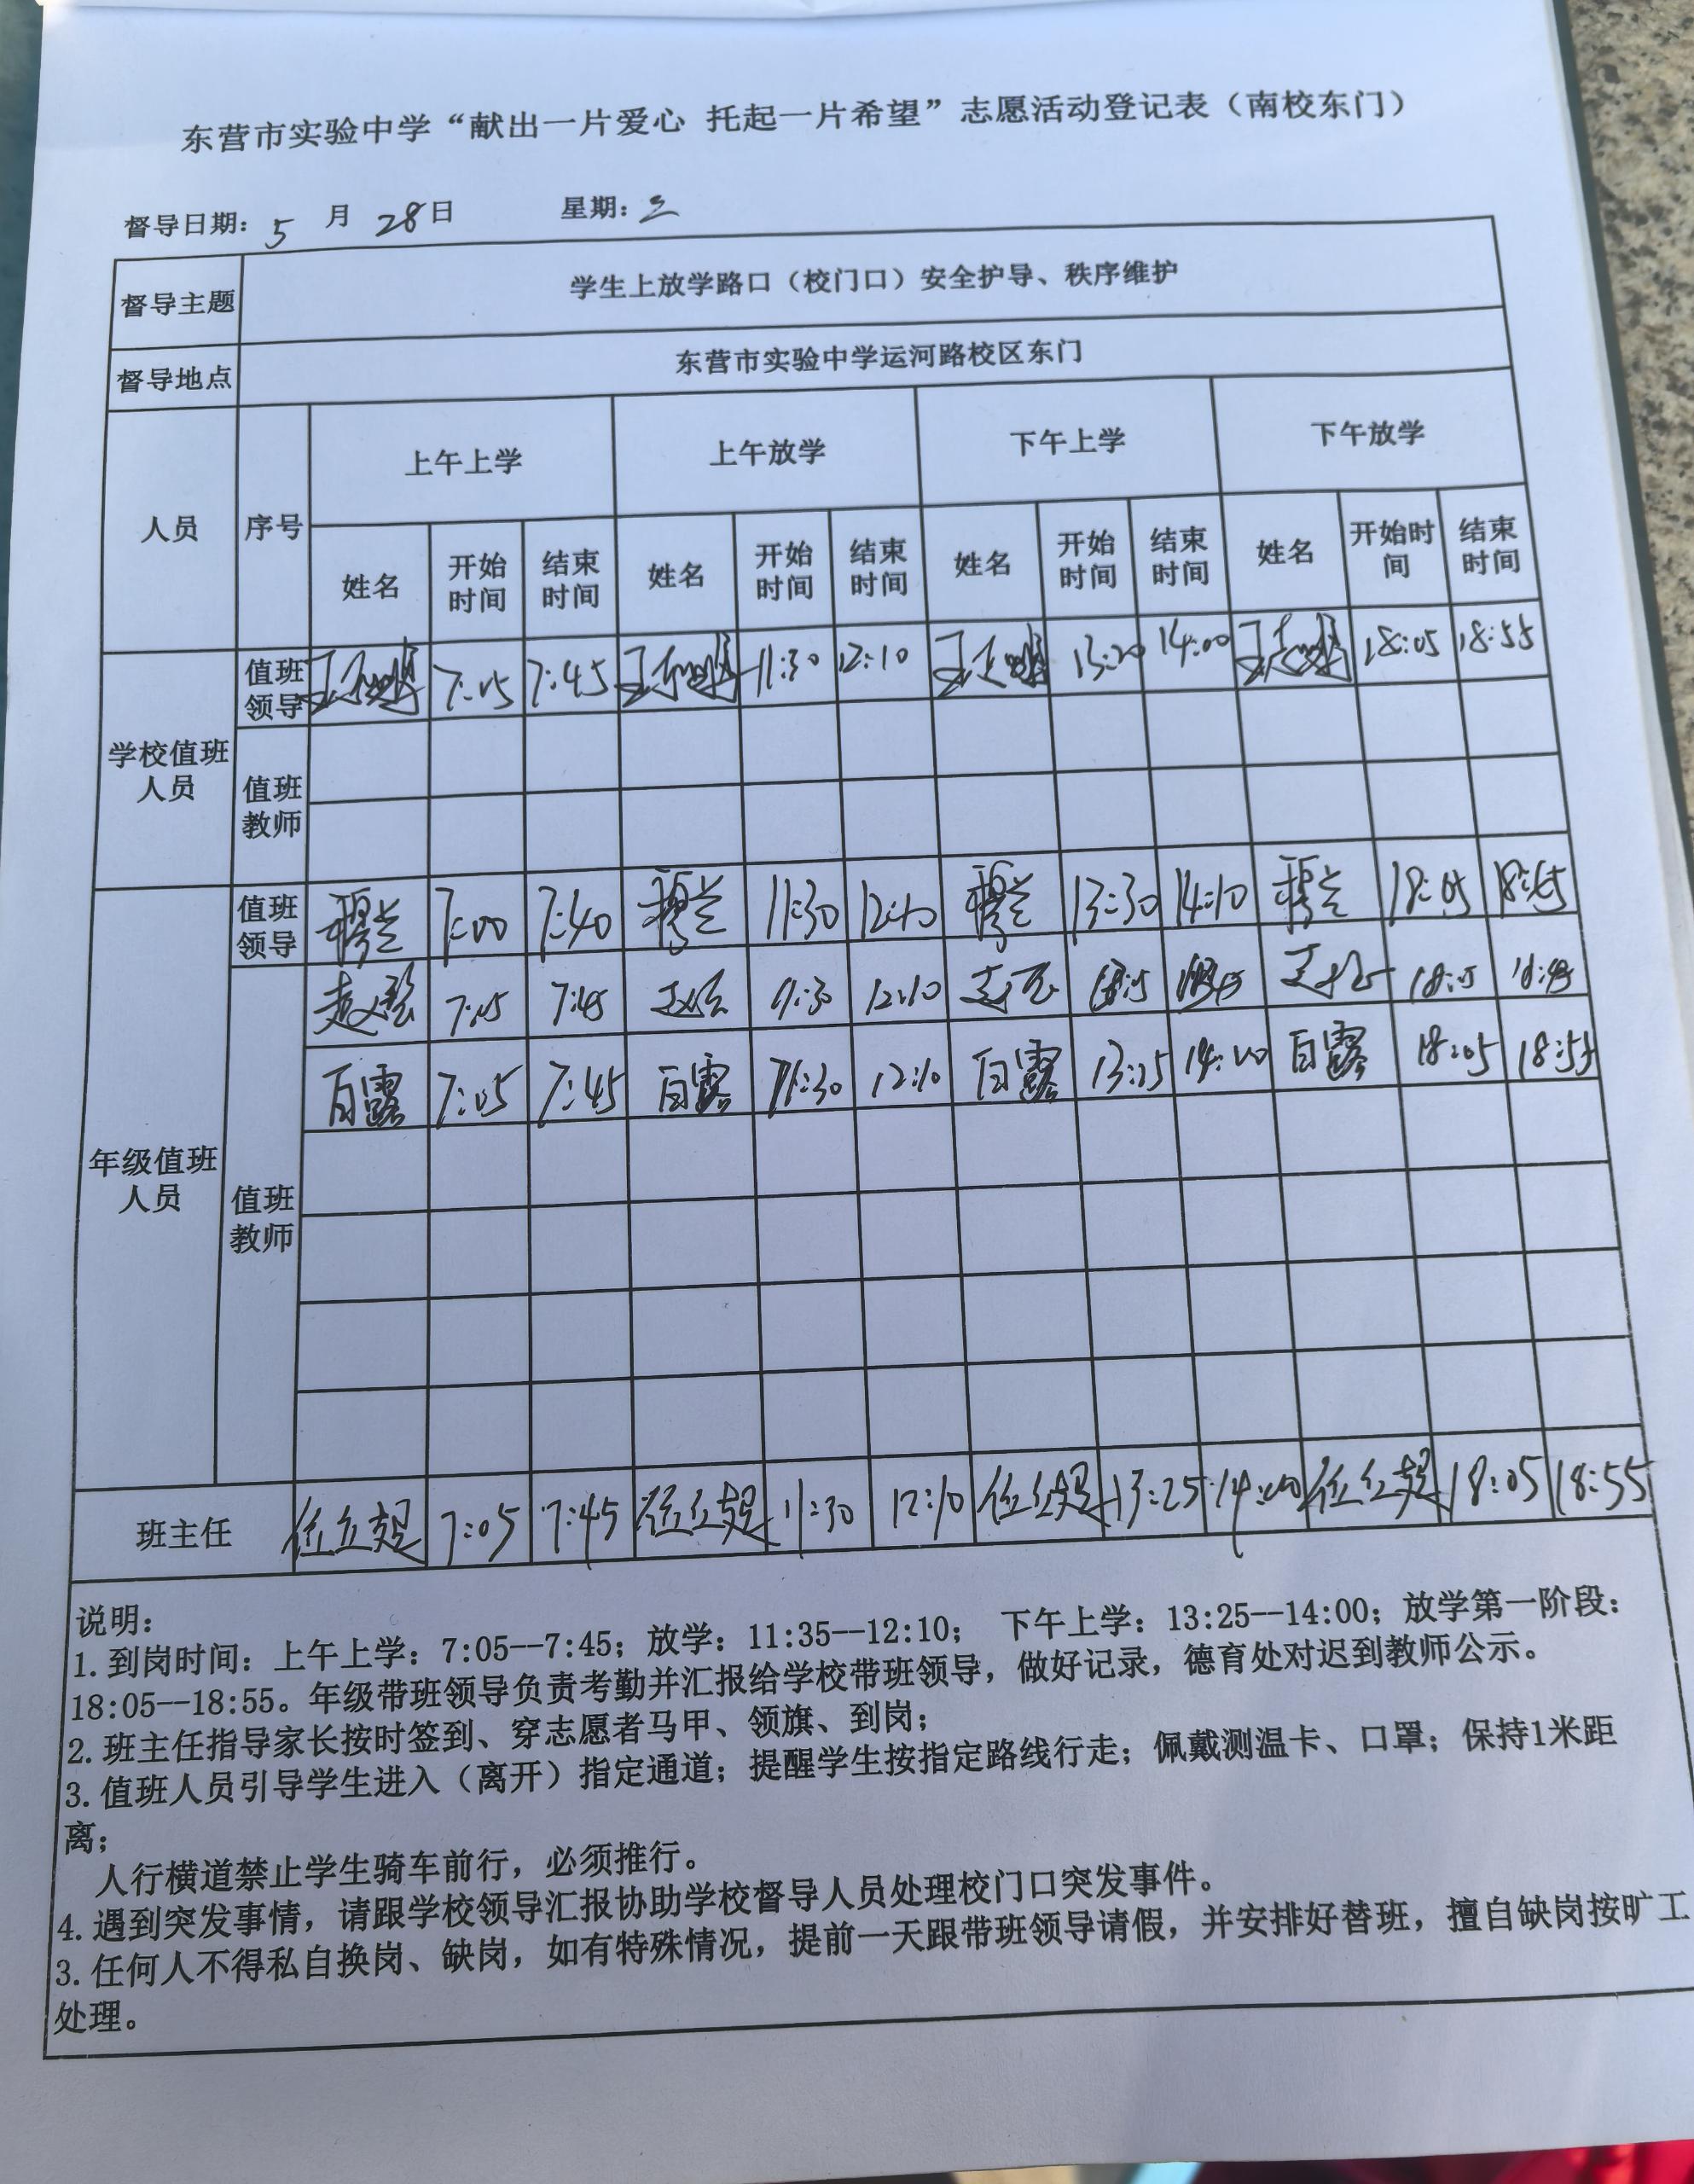 东营市实验中学“献出一片爱心 托起一片希望”志愿活动登记表（南校东门）
督导日期: 5 月 28日 星期: 三
督导主题 学生上放学路口（校门口）安全护导、秩序维护
督导地点 东营市实验中学运河路校区东门
人员 序号 上午上学 上午放学 下午上学 下午放学
姓名 开始时间 结束时间 姓名 开始时间 结束时间 姓名 开始时间 结束时间 姓名 开始时间 结束时间
学校值班人员
值班领导 7:05 7:45 11:30 12:10 13:20 14:00 18:05 18:55
值班教师
年级值班人员
值班领导 7:00 7:40 11:30 12:10 13:30 14:10 18:05
值班教师
7:05 7:45 11:30 12:10 18:05
白露 7:05 7:45 白露 11:30 12:10 白露 13:25 14:00 白露 18:05 18:55
班主任 7:05 7:45 11:30 12:10 13:25 14:00 18:05 18:55
说明:
1.到岗时间: 上午上学: 7:05--7:45; 放学: 11:35--12:10; 下午上学: 13:25--14:00; 放学第一阶段:
18:05--18:55。年级带班领导负责考勤并汇报给学校带班领导，做好记录，德育处对迟到教师公示。
2.班主任指导家长按时签到、穿志愿者马甲、领旗、到岗;
3.值班人员引导学生进入（离开）指定通道; 提醒学生按指定路线行走; 佩戴测温卡、口罩; 保持1米距
离;
人行横道禁止学生骑车前行，必须推行。
4.遇到突发事情，请跟学校领导汇报协助学校督导人员处理校门口突发事件。
3.任何人不得私自换岗、缺岗，如有特殊情况，提前一天跟带班领导请假，并安排好替班，擅自缺岗按旷工
处理。